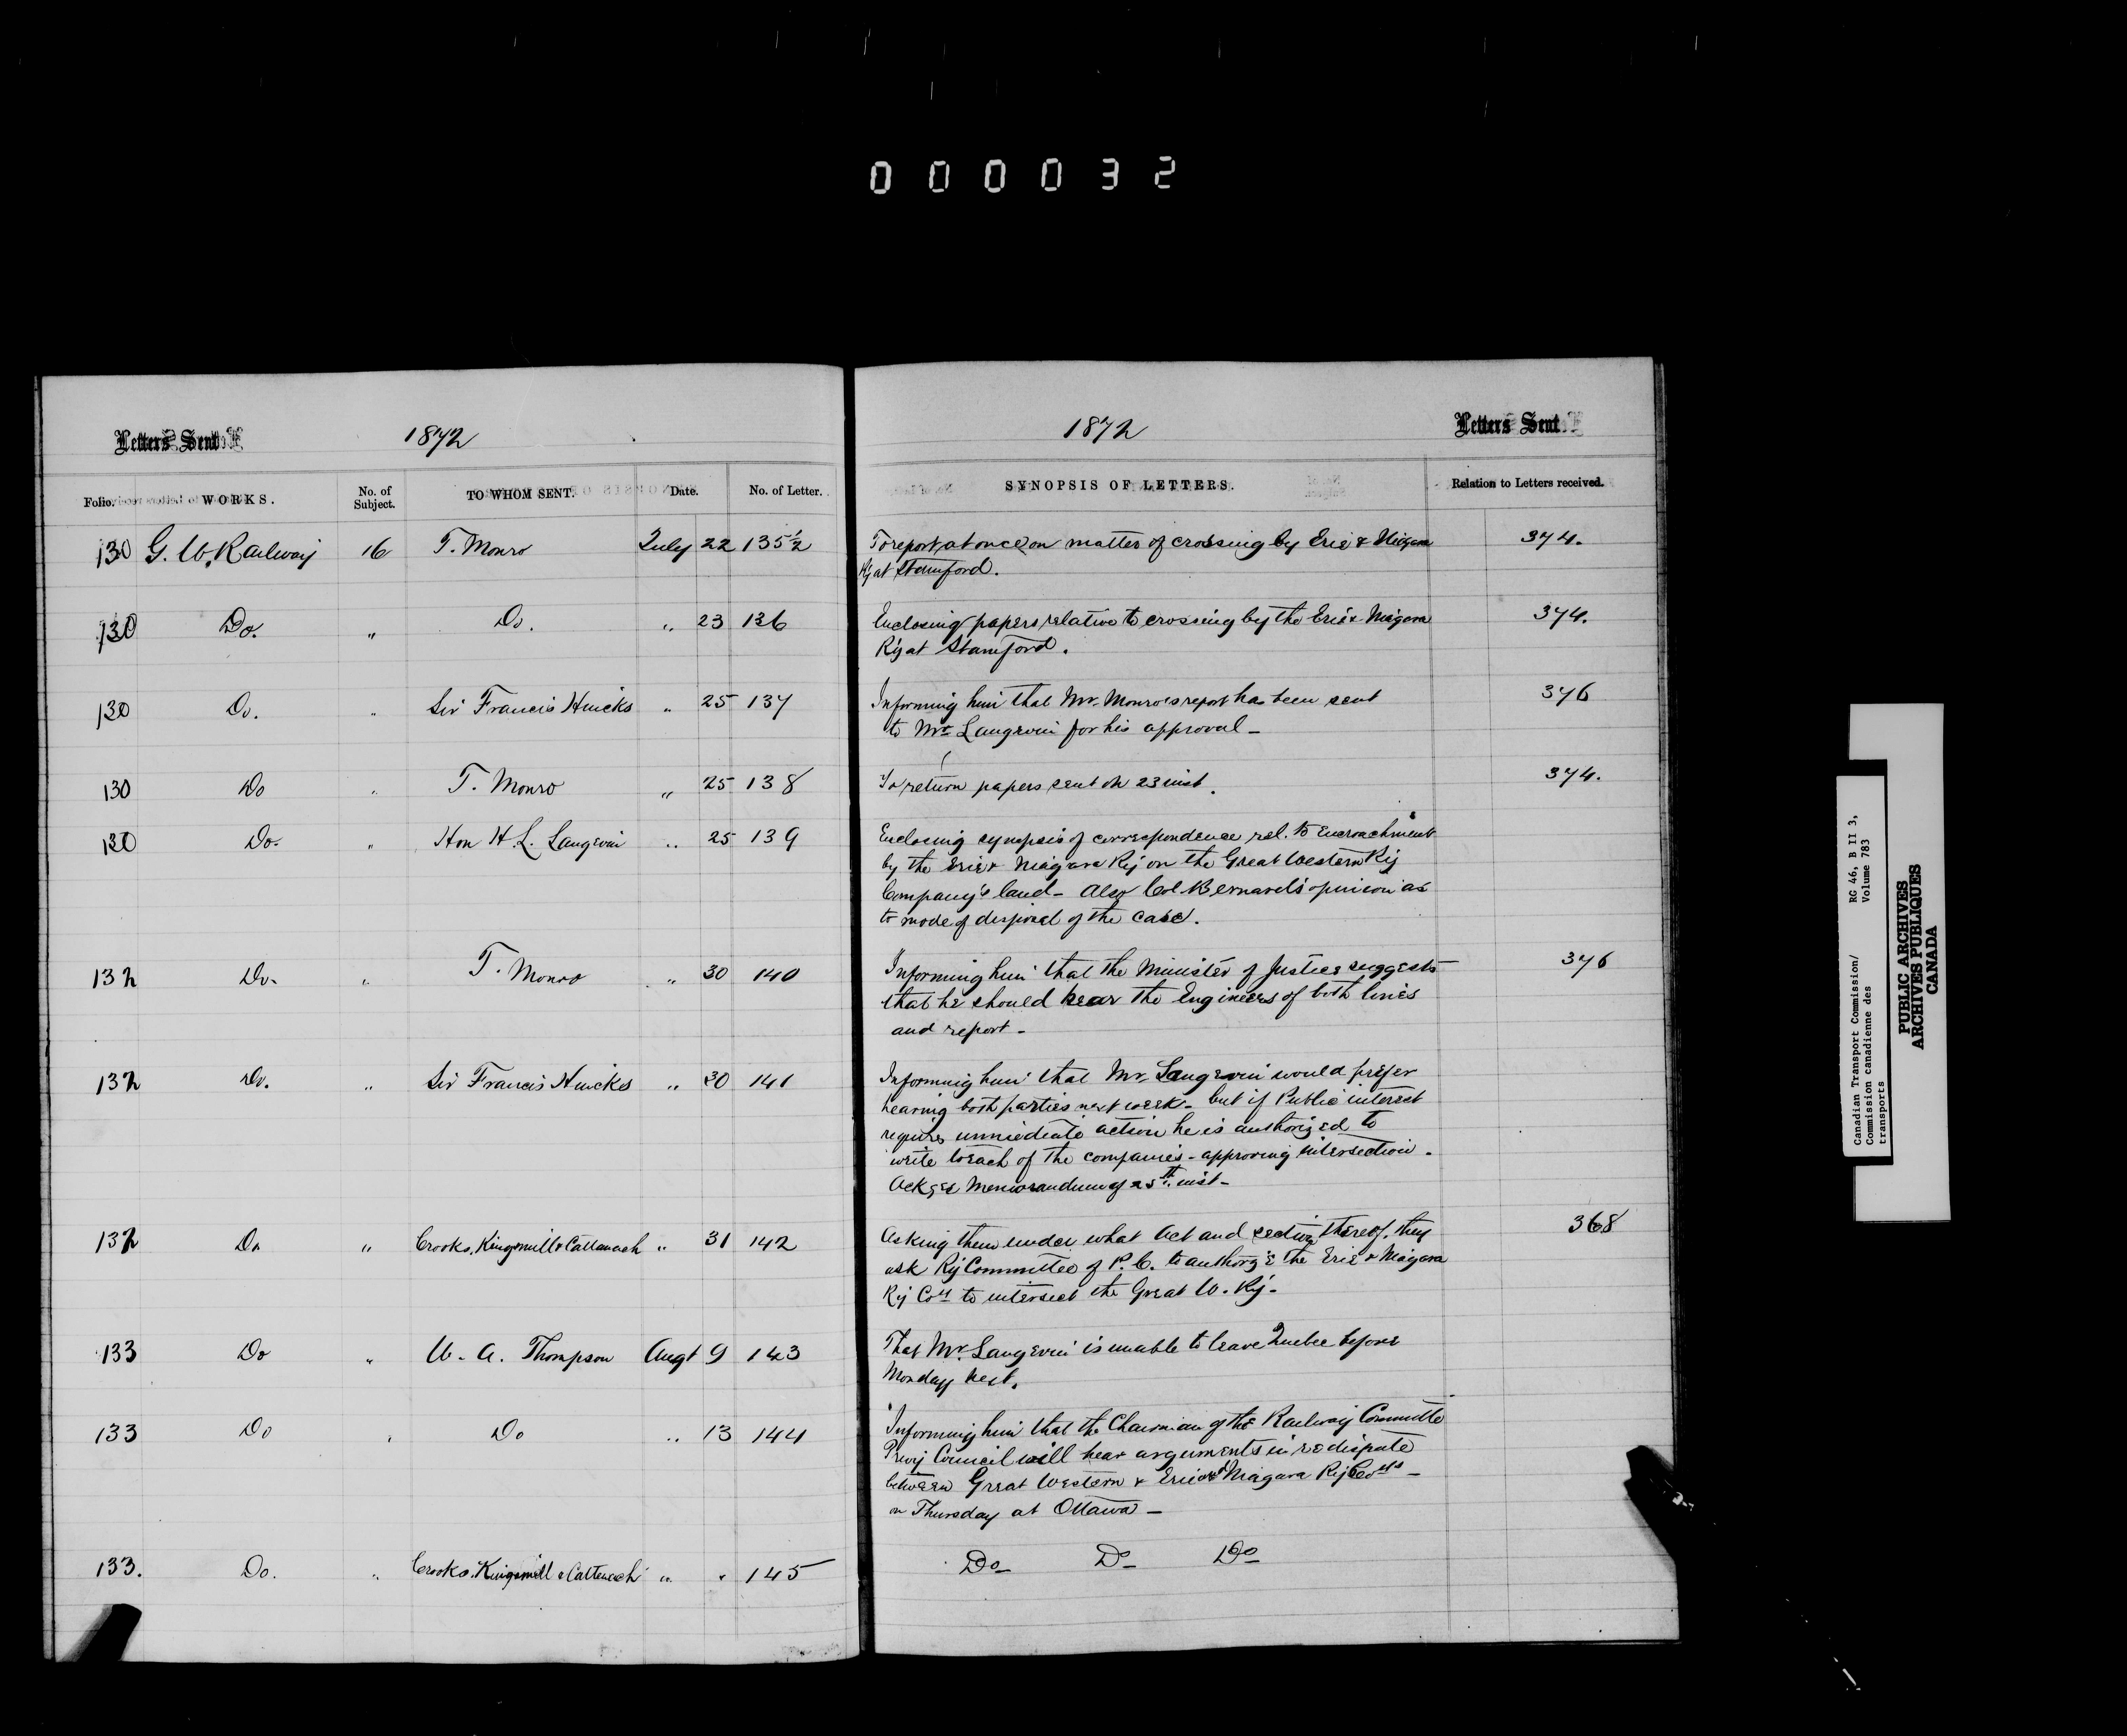 000032
Letters Sent
1872
Folio. WORKS. No. of Subject. TO WHOM SENT. Date. No. of Letter.
130 G. W. Railway 16 T. Monro July 22 135½
130 Do. " Do. " 23 136
130 Do. " Sir Francis Hincks " 25 137
130 Do " T. Monro " 25 138
130 Do. " Hon H. L. Langevin " 25 139
132 Do. " T. Monro " 30 140
132 Do. " Sir Francis Hincks " 30 141
132 Do " Crooks, Kingsmill & Cattanach " 31 142
133 Do " W. A. Thompson Augt 9 143
133 Do " Do " 13 144
133. Do. " Crooks, Kingsmill & Cattanach " " 145
1872
Letters Sent
SYNOPSIS OF LETTERS. Relation to Letters received.
To report at once on matter of crossing by Erie & Niagara 374.
Ry at Stamford.
Enclosing papers relative to crossing by the Erie & Niagara 374.
Ry at Stamford.
Informing him that Mr. Monro's report has been sent 376
to Mr Langevin for his approval -
To return papers sent on 23 inst. 374.
Enclosing synopsis of correspondence rel. to Encroachment
by the Erie & Niagara Ry on the Great Western Ry
Company's land - Also Col. Bernard's opinion as
to mode of disposal of the case.
Informing him that the Minister of Justice suggests 376
that he should hear the Engineers of both lines
and report -
Informing him that Mr. Langevin would prefer
hearing both parties next week - but if Public interest
requires immediate action he is authorized to
write to each of the companies - approving intersection.
Ackges Memorandum of 25th inst -
Asking them under what Act and section thereof, they 368
ask Ry Committee of P. C. to authorize the Erie & Niagara
Ry Coy to intersect the Great W. Ry -
That Mr. Langevin is unable to leave Quebec before
Monday next.
Informing him that the Chairman of the Railway Committe
Privy Council will hear arguments in re dispute
between Great Western & Erie & Niagara Ry Coys -
on Thursday at Ottawa -
Do Do Do
Canadian Transport Commission/ RG 46, B II 3,
Commission canadienne des Volume 783
transports
PUBLIC ARCHIVES
ARCHIVES PUBLIQUES
CANADA